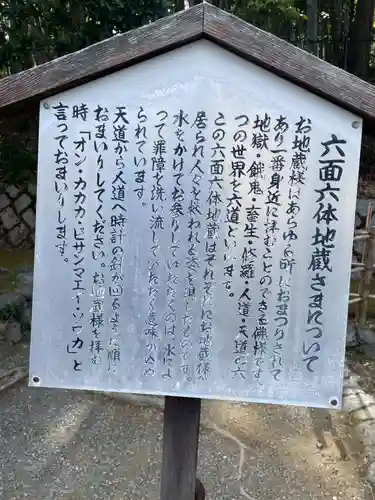 六面六体地蔵さまについて
お地蔵様はあらゆる所におまつりされて
あり一番身近に拝むことのできる仏様です。
地獄・餓鬼・畜生・修羅・人道・天道の六
つの世界を六道といいます。
この六面六体地蔵はそれぞれにお地蔵様が
居られ人々を救われる姿を
水をかけてお参りしていただくのは水によ
って罪障を洗い流していただく意味が込め
られています。
天道から人道へ時計の針が回るように順に
おまいりしてください。お地蔵様を拝む
時「オン・カカカ・ビサンマエイ・ソワカ」と
言っておまいりします。